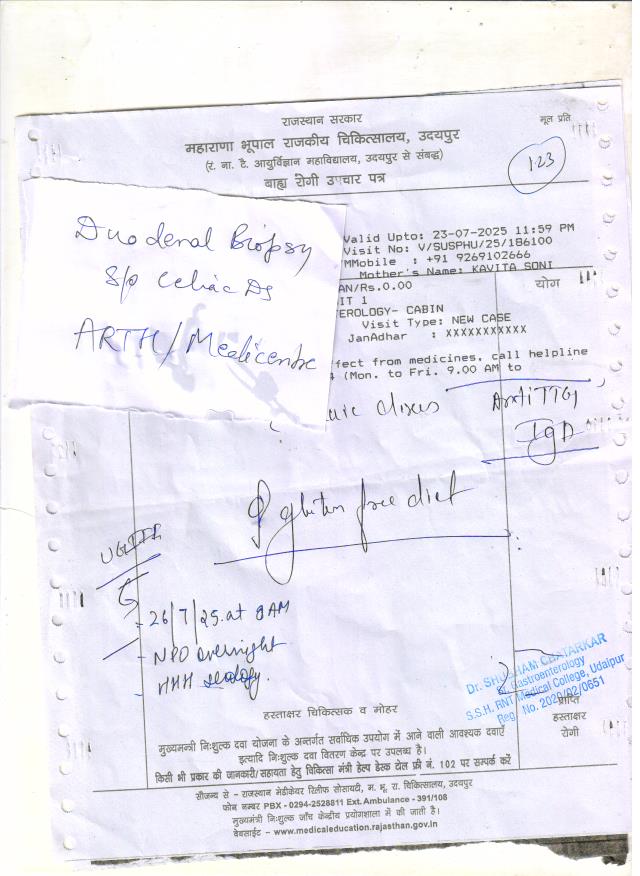 राजस्थान सरकार
मूल प्रति
महाराणा भूपाल राजकीय चिकित्सालय, उदयपुर
(र. ना. टै. आयुर्विज्ञान महाविद्यालय, उदयपुर से संबद्ध)
बाह्य रोगी उपचार पत्र
123
Duodenal Biopsy
S/o Celiac Ds
ARTH/Medicentre
Valid Upto: 23-07-2025 11:59 PM
Visit No: V/SUSPHU/25/186100
MMobile : +91 9269102666
Mother's Name: KAVITA SONI
AN/Rs.0.00
योग
IT 1
EROLOGY- CABIN
Visit Type: NEW CASE
JanAdhar : XXXXXXXXXXX
fect from medicines, call helpline
(Mon. to Fri. 9.00 AM to
Anti TTG
IgA
gluten free diet
UGIE
26/7/25 at 9AM
NPO overnight
HHH serology.
Dr. SHUBHAM CHATARKAR
Gastroenterology
S.S.H. RNT Medical College, Udaipur
Reg. No. 2020/02/0651
हस्ताक्षर चिकित्सक व मोहर
प्राप्ति
हस्ताक्षर
रोगी
मुख्यमन्त्री निःशुल्क दवा योजना के अन्तर्गत सर्वाधिक उपयोग में आने वाली आवश्यक दवाऐं
इत्यादि निःशुल्क दवा वितरण केन्द्र पर उपलब्ध है।
किसी भी प्रकार की जानकारी/सहायता हेतु चिकित्सा मंत्री हेल्प डेस्क टोल फ्री नं. 102 पर सम्पर्क करें
सौजन्य से - राजस्थान मेडीकेयर रिलीफ सोसायटी, म. भू. रा. चिकित्सालय, उदयपुर
फोन नम्बर PBX - 0294-2528811 Ext. Ambulance - 391/108
मुख्यमंत्री निःशुल्क जाँच केन्द्रीय प्रयोगशाला में की जाती है।
वेबसाईट - www.medicaleducation.rajasthan.gov.in